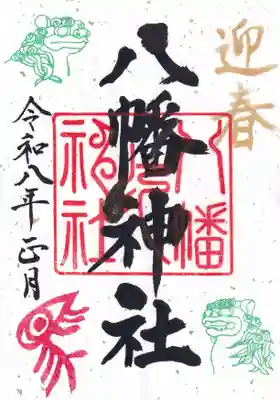 迎春
八幡神社
八幡神社
令和八年正月